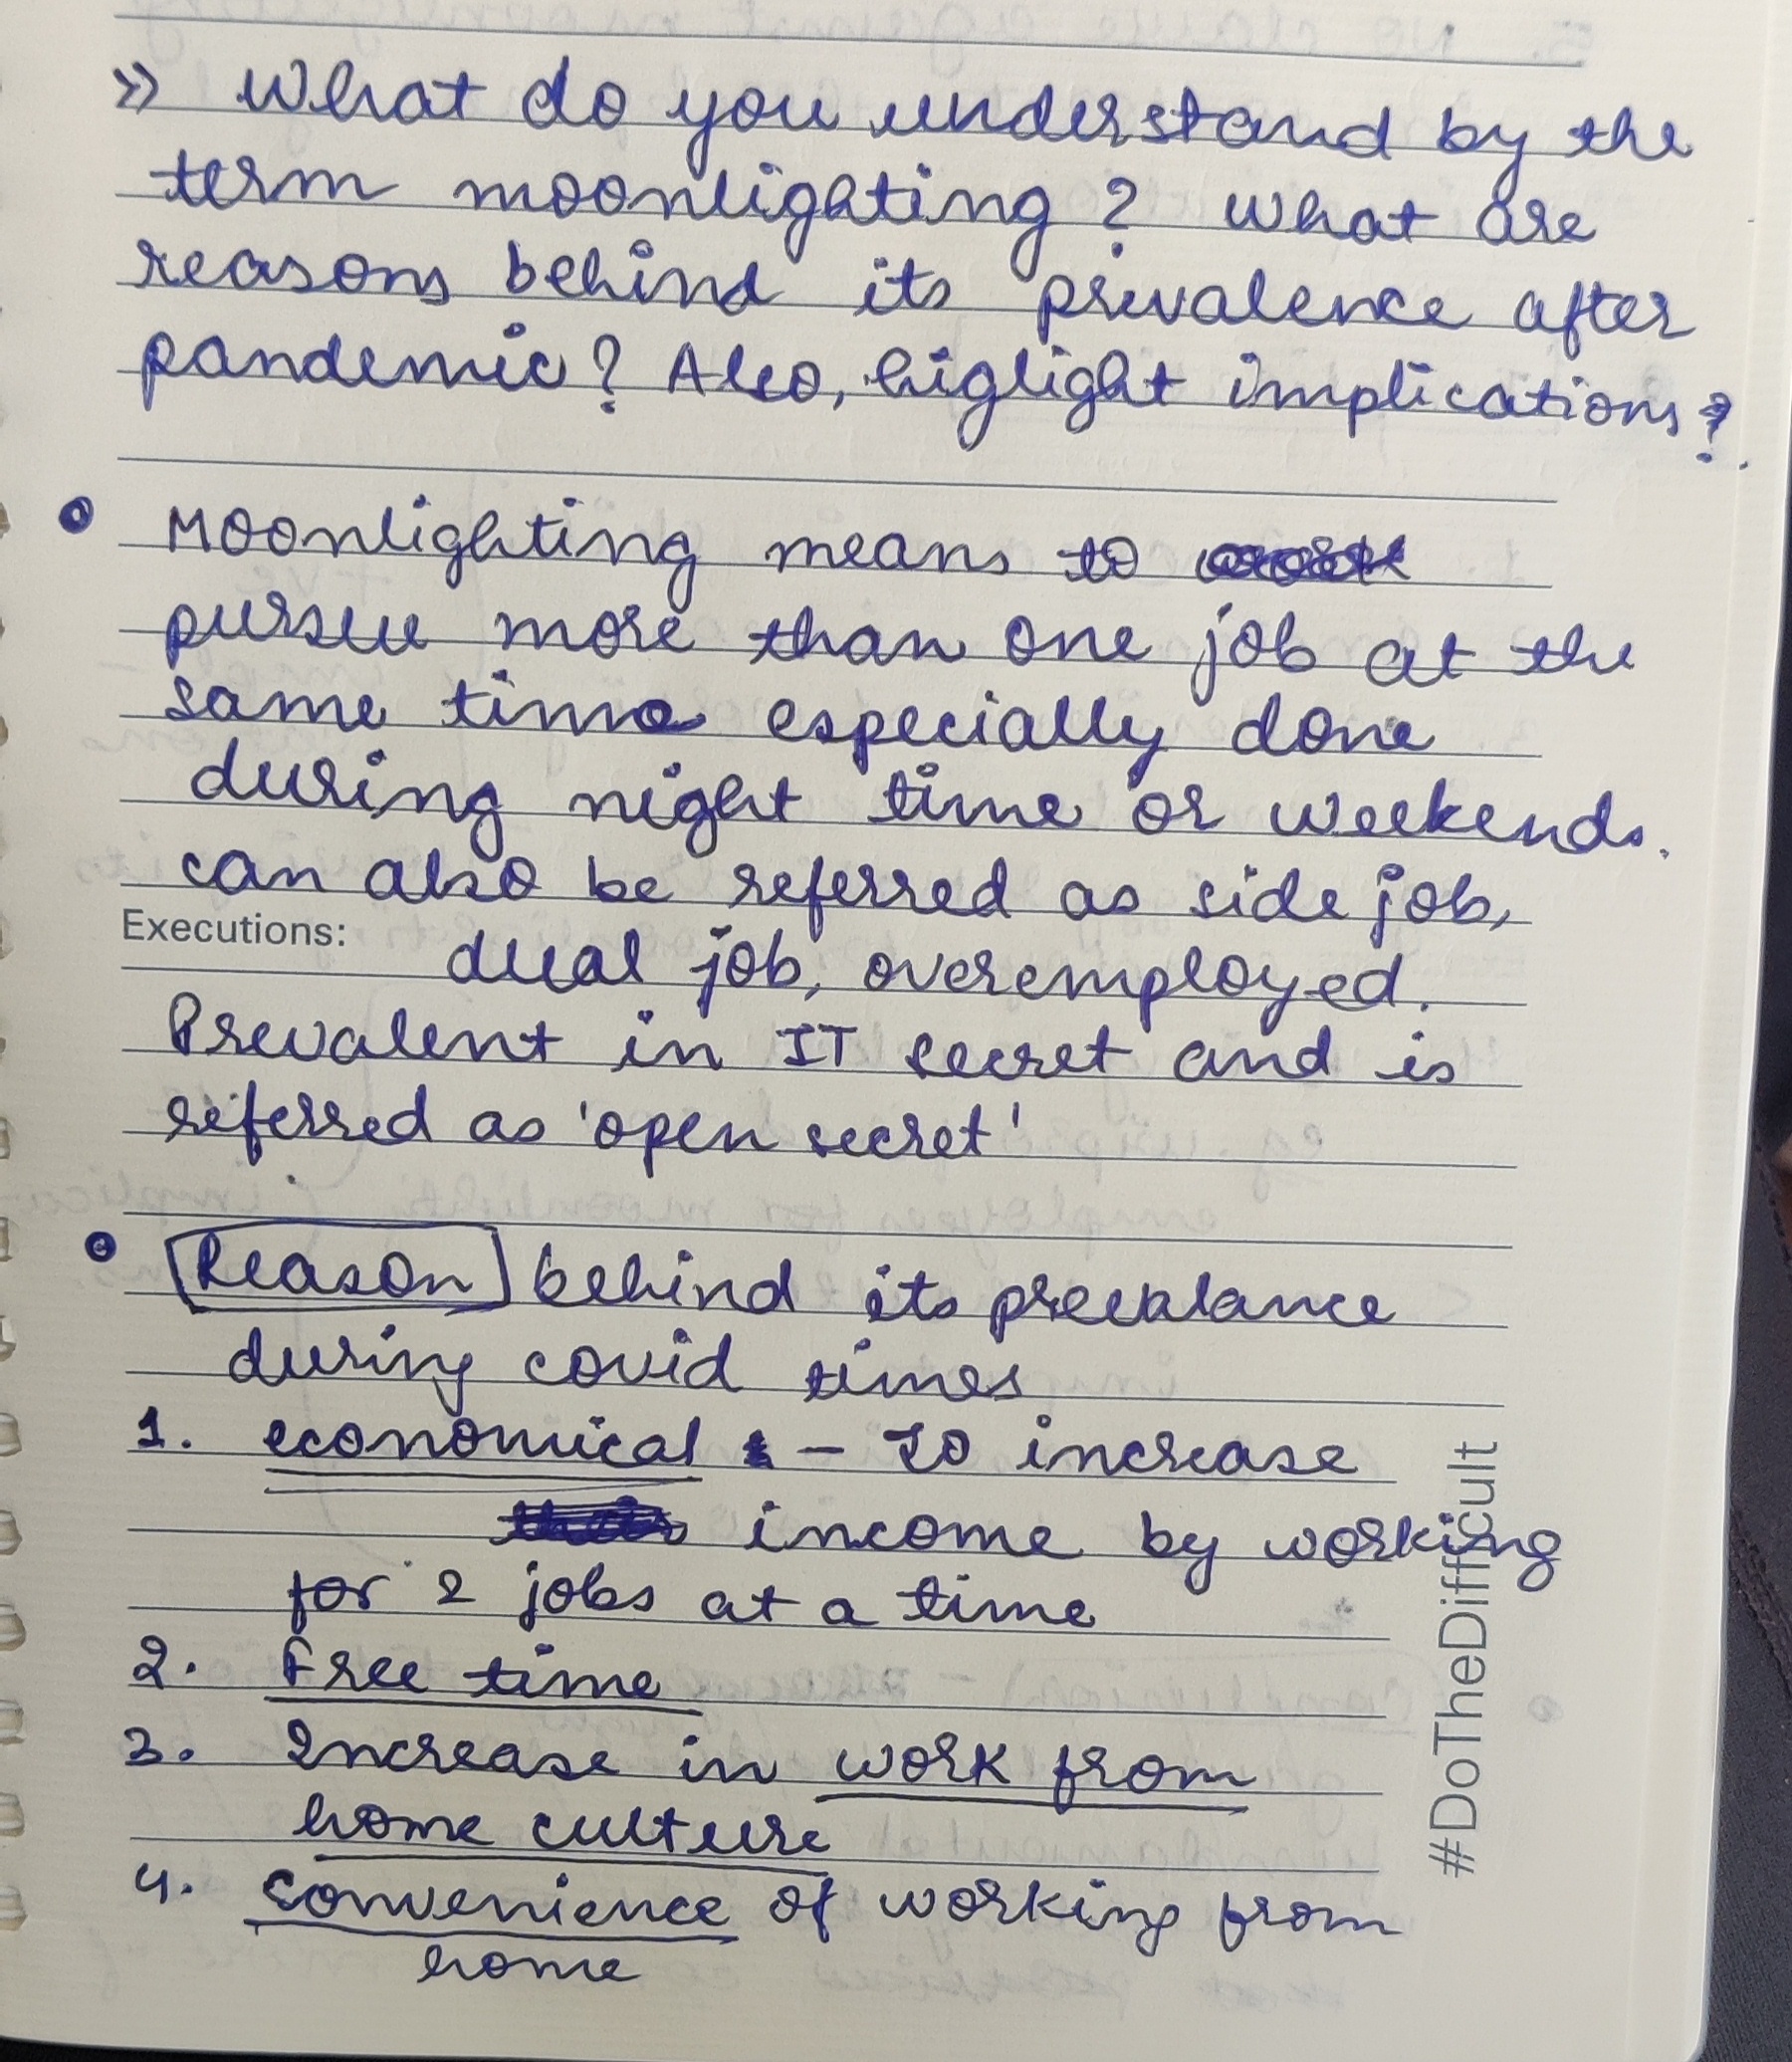 >> What do you understand by the
term moonlighting? What are
reasons behind its prevalence after
pandemic? Also, higlight implications?
• Moonlighting means to
pursue more than one job at the
same time especially done
during night time or weekends.
can also be referred as side job,
Executions:
dual job, overemployed.
Prevalent in IT secret and is
referred as 'open secret'
• Reason behind its
during covid times
1. economical - To increase
income by working
for 2 jobs at a time
2. Free time
3. Increase in work from
home culture
4. convenience of working from
home
#DoTheDifficult